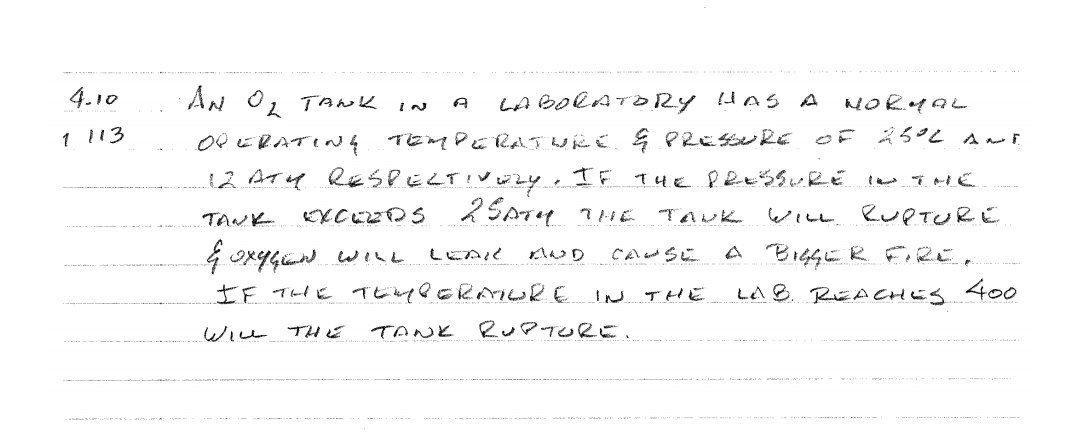 4.10 AN O2 TANK IN A LABORATORY HAS A NORMAL
1 113 OPERATING TEMPERATURE & PRESSURE OF 25°C AND
12 ATM RESPECTIVELY. IF THE PRESSURE IN THE
TANK EXCEEDS 25ATM THE TANK WILL RUPTURE
& OXYGEN WILL LEAK AND CAUSE A BIGGER FIRE.
IF THE TEMPERATURE IN THE LAB REACHES 400
WILL THE TANK RUPTURE.